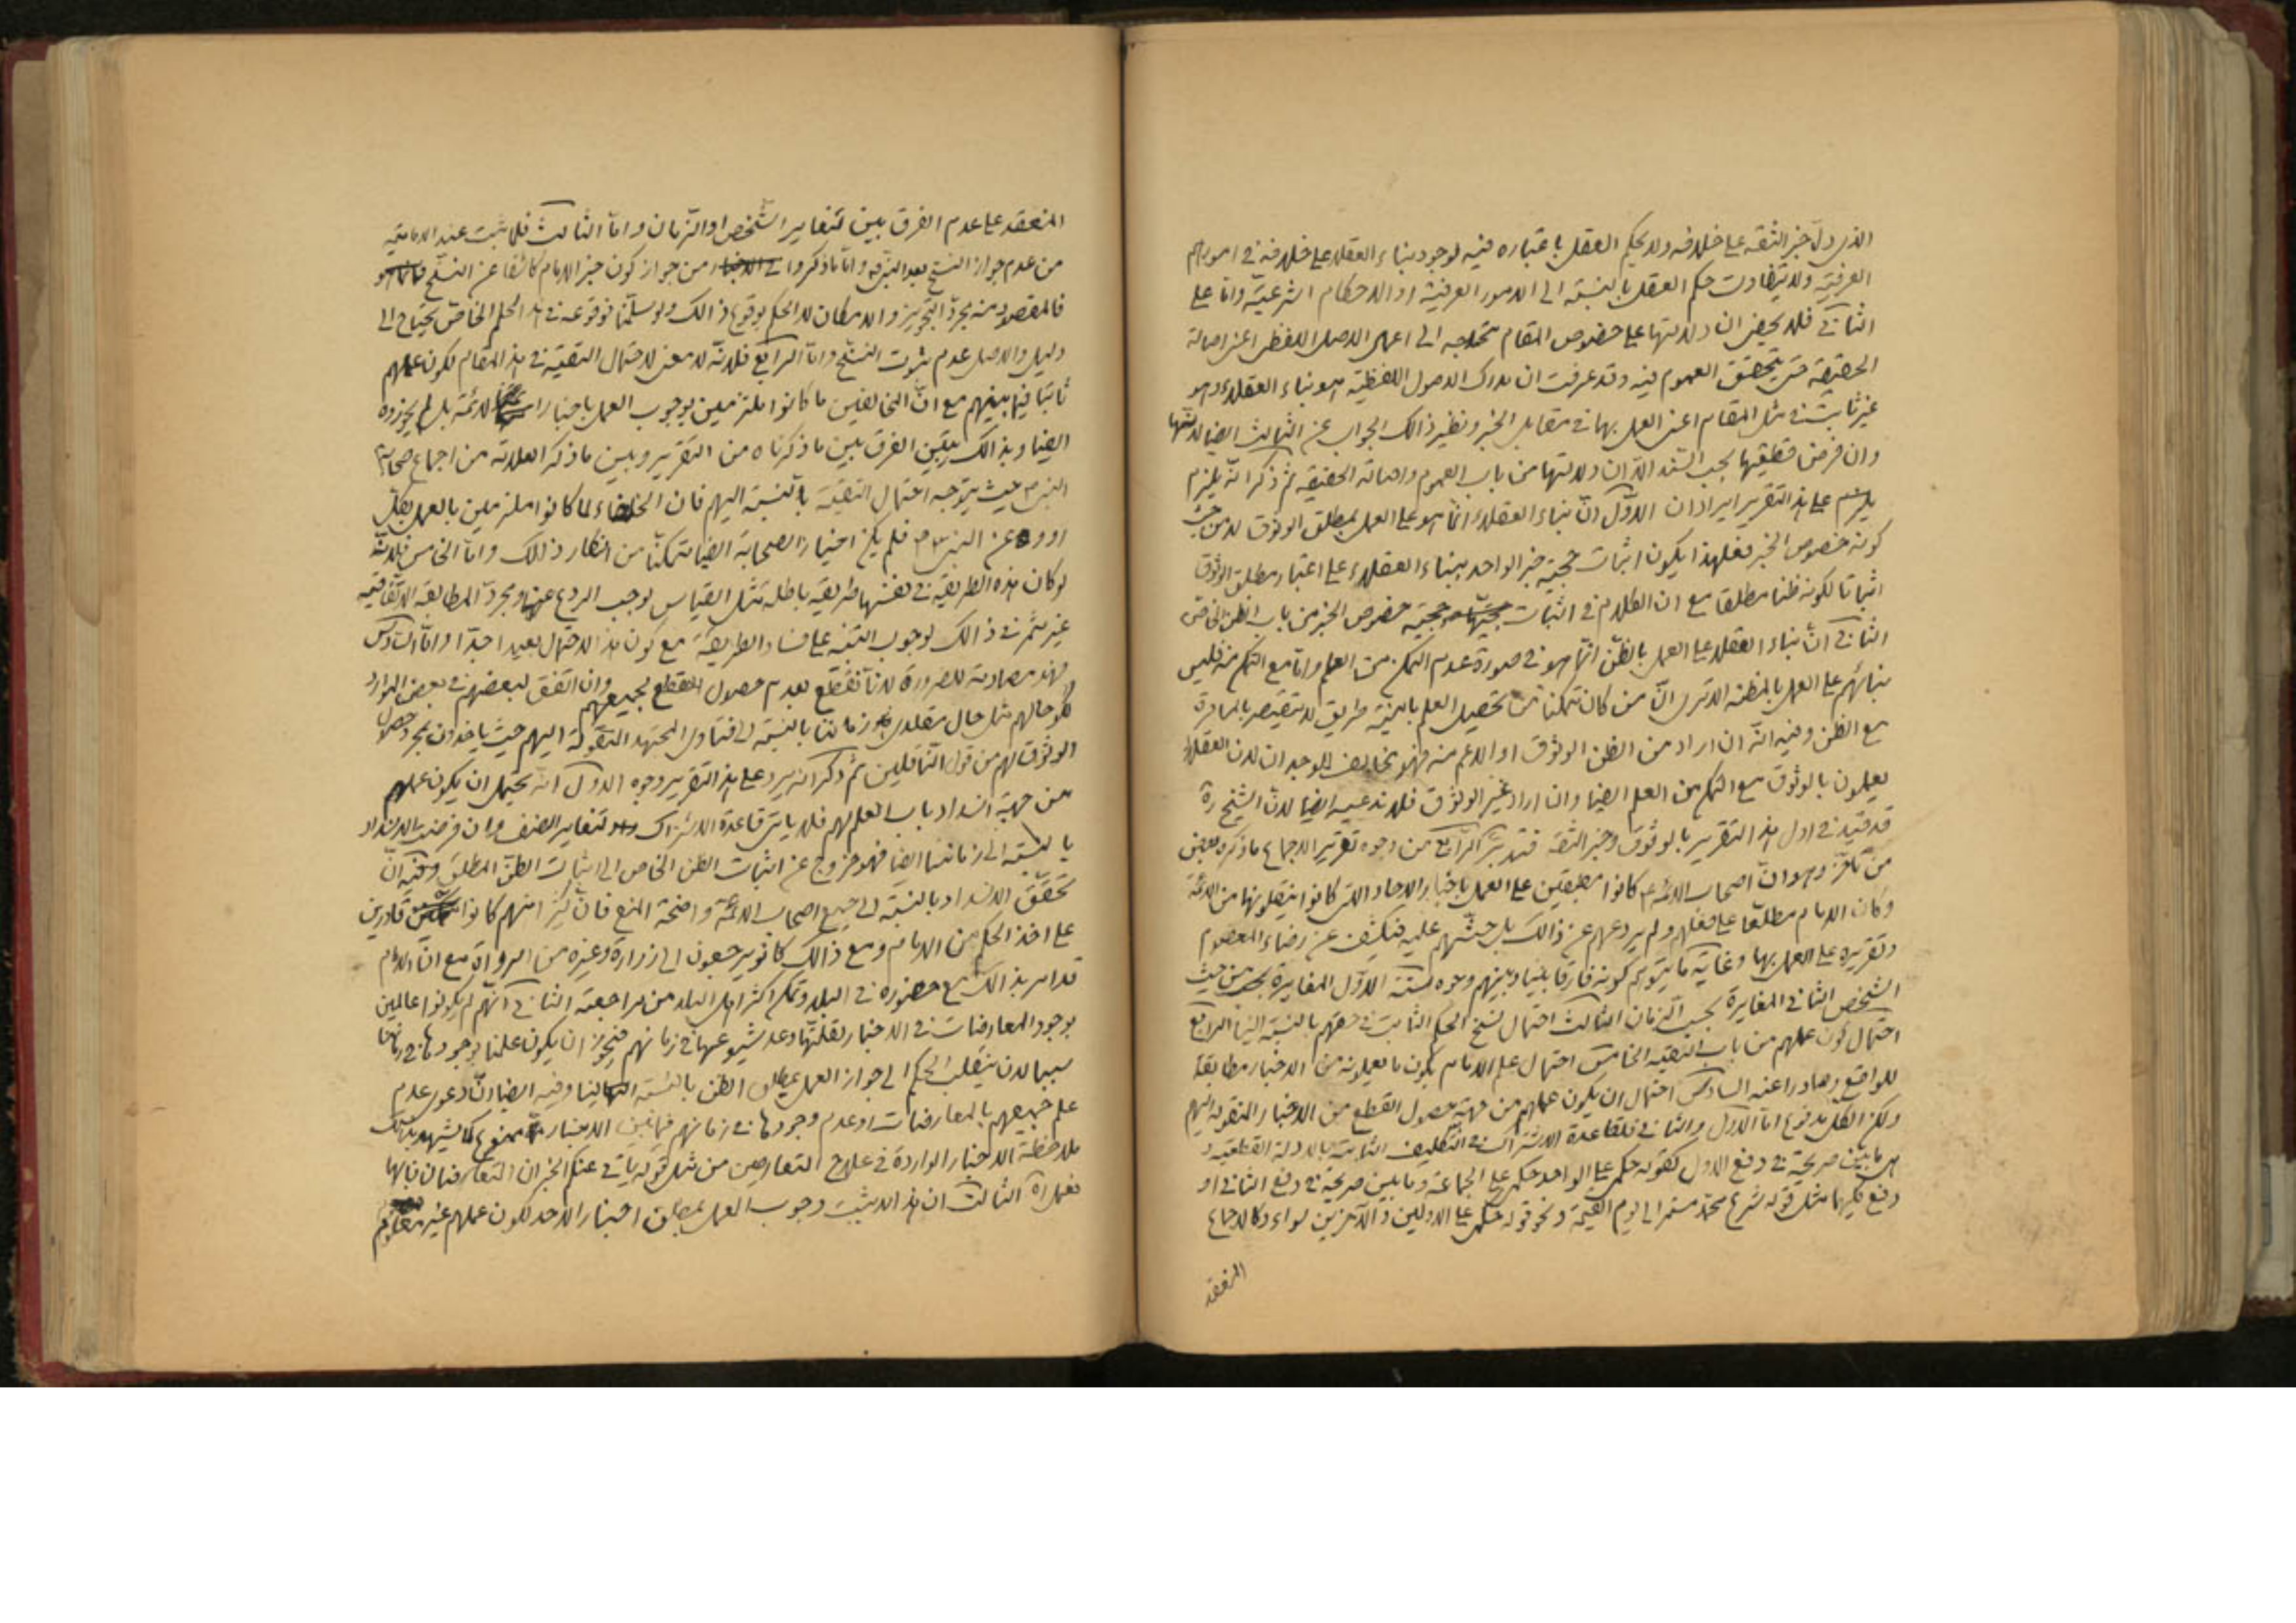 الذى دلّ خبر الثقة على خلافه ولا يحكم العقل باعتباره فيه لوجود بناء العقلاء على خلافه فى امورهم
العرفيّة ولا يتفاوت حكم العقل بالنسبة الى الامور العرفيّة او الاحكام الشرعيّة وامّا على
الثانى فلا يخفى ان دلالتها على خصوص المقام محتاجه الى اعمال الاصل اللفظى اعنى اصالة
الحقيقة حتى يتحقق العموم فيه وقد عرفت ان مدرك الاصول اللفظيّة هو بناء العقلاء وهو
غير ثابت فى مثل المقام اعنى العمل بها فى مقابل الخبر ونظير ذالك الجواب عن الثالث ايضا لانّها
وان فرض قطعيّتها بحسب السّند الّا ان دلالتها من باب العموم واصالة الحقيقة ثم ذكر انّه يلزم
على هذا التقرير ايرادان الاوّل انّ بناء العقلاء انّما هو على العمل بمطلق الوثوق لا من حيث
كونه خصوص الخبر فعلى هذا يكون اثبات حجيّة خبر الواحد ببناء العقلاء على اعتبار مطلق الوثوق
اثباتا لكونه ظنا مطلقا مع ان الكلام فى اثبات حجيّة خصوص الخبر من باب الظن الخاص
الثانى انّ بناء العقلاء على العمل بالظنّ انّما هو فى صورة عدم التمكن من العلم وامّا مع التمكن منه فليس
بنائهم على العمل بالمظنة الا ترى انّ من كان متمكنا من تحصيل العلم باىّ طريق لا يقتصر بالمبادرة
مع الظن وفيه انّه ان اراد من الظن الوثوق او الاعم منه فهو مخالف للوجدان لان العقلاء
يعملون بالوثوق مع التمكن من العلم ايضا وان اراد غير الوثوق فلا ندعيه ايضا لانّ الشيخ ره
قد قيّد فى اول هذا التقرير بالوثوق وخبر الثقة فتدبر الرّابع من وجوه تقرير الاجماع ما ذكره بعض
من تأخّر وهو انّ اصحاب الائمّة ع كانوا مطبقين على العمل باخبار الاحاد التى كانوا ينقلونها من الائمّة
وكان الامام مطلّعا على فعلهم ولم يردعهم عن ذالك بل حثّهم عليه فيكشف عن رضاء المعصوم
وتقريره على العمل بها وغاية ما يتوهم كونه فارقا بيننا وبينهم وجوه ستّة الاوّل المغايرة من حيث
الشخص الثانى المغايرة بحسب الزمان الثالث احتمال نسخ الحكم الثابت فى حقهم بالنسبة الينا الرابع
احتمال كون عملهم من باب التقيّة الخامس احتمال علم الامام بكون ما يعملونه من الاخبار مطابقا
للواقع وصادرا عنه السادس احتمال ان يكون عملهم من جهة حصول القطع من الاخبار المنقولة اليهم
ولكن الكل مدفوع امّا الاوّل والثانى فلقاعدة الاشتراك فى التكليف الثابتة بالادلة القطعيّة و
هى ما بين صريحة فى دفع الاول كقوله حكمى على الواحد حكمى على الجماعة وما بين صريحة فى دفع الثانى او
دفع كليهما مثل قوله شرع محمّد مستمر الى يوم القيمة ونحو قوله حكمى على الاولين والآخرين سواء وكالاجماع
المنعقد
المنعقد على عدم الفرق بين تغاير الشّخص او الزّمان وامّا الثالث فلما ثبت عند الاماميّة
من عدم جواز النسخ بعد النبّى وامّا ما ذكروا من جواز كون خبر الامام كاشفا عن النسخ
فالمقصود منه مجرّد التجويز والامكان لا الحكم بوقوع ذالك ولو سلّمنا فوقوعه فى هذا الحكم الخاصّ يحتاج الى
دليل والاصل عدم ثبوت النسخ وامّا الرابع فلانّه لا معنى لاحتمال التقيّة فى هذا المقام لكون عملهم
ثابتا فيما بينهم مع انّ المخالفين ما كانوا ملتزمين بوجوب العمل باخبار الائمّة بل لم يجوّزوه
ايضا وبذالك يتبيّن الفرق بين ما ذكرناه من التقرير وبين ما ذكر العلامة من اجماع صحابة
النبى ص حيث يتوجه احتمال التقيّة بالنسبة اليهم فان الخلفاء لما كانوا ملتزمين بالعمل بكلّ
عن النبى ص فلم يكن اخيار الصحابة ايضا متمكنا من انكار ذالك وامّا الخامس فلانّه
لو كان هذه الطريقة فى نفسها طريقة باطلة مثل القياس لوجب الردع عنها ومجرّد المطابقة الاتفاقيّة
غير مثمر فى ذالك لوجوب التنبيه على فساد الطريقة مع كون هذا الاحتمال بعيدا جدّا وامّا السّادس
فهو مصادمة للضرورة لانّا نقطع بعدم حصول القطع لجميعهم وان اتفق لبعضهم فى بعض الموارد
لكن حالهم مثل حال مقلدى زماننا بالنسبة الى فتاوى المجتهد المنقولة اليهم حيث ياخذون بمجرد حصول
الوثوق لهم من قول النّاقلين ثم ذكر انّه يرد على هذا التقرير وجوه الاول انّه يحتمل ان يكون عملهم
من جهة انسداد باب العلم لهم فلا ياتى قاعدة الاشتراك لتغاير الصنف وان فرض الانسداد
بالنسبة الى زماننا ايضا فهو خروج عن اثبات الظن الخاص الى اثبات الظنّ المطلق وفيه انّ
تحقّق الانسداد بالنسبة الى جميع اصحاب الائمّة واضحة المنع فان كثيرا منهم كانوا قادرين
على اخذ الحكم من الامام ومع ذالك كانو يرجعون الى زرارة وغيره من الرواة مع انّ الامام
قد امر بذالك مع حضوره فى البلد وتمكن اكثر اهل البلد من مراجعته الثانى انّهم لم يكونوا عالمين
بوجود المعارضات فى الاخبار لقلّتها وعدم شيوعها فى زمانهم فيجوز ان يكون علمنا بوجودها فى زماننا
سببا لان ينقلب الحكم الى جواز العمل بمطلق الظن بالنسبة الينا وفيه ايضا انّ دعوى عدم
علم جميعهم بالمعارضات او عدم وجودها فى زمانهم فيما بين الاخبار ممنوع كما يشهد بذالك
ملاحظة الاخبار الواردة فى علاج التعارض من مثل قوله ياتى عنكم الخبران المتعارضان فبايّهما
نعمل اه الثالث ان هذا لا يثبت وجوب العمل بمطلق اخبار الاحاد لكون عملهم غير معلوم